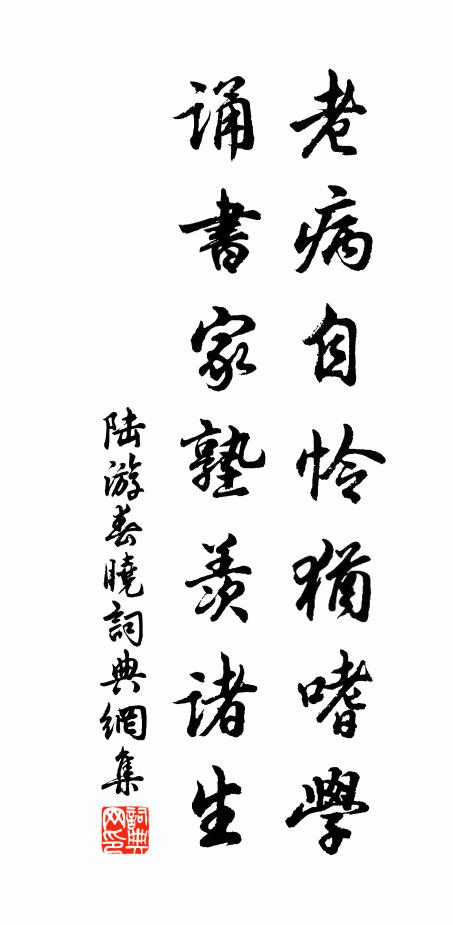 老病自怜猶嗜學
诵書家塾羨诸生
陆游春曉詞典網集
詞典网印